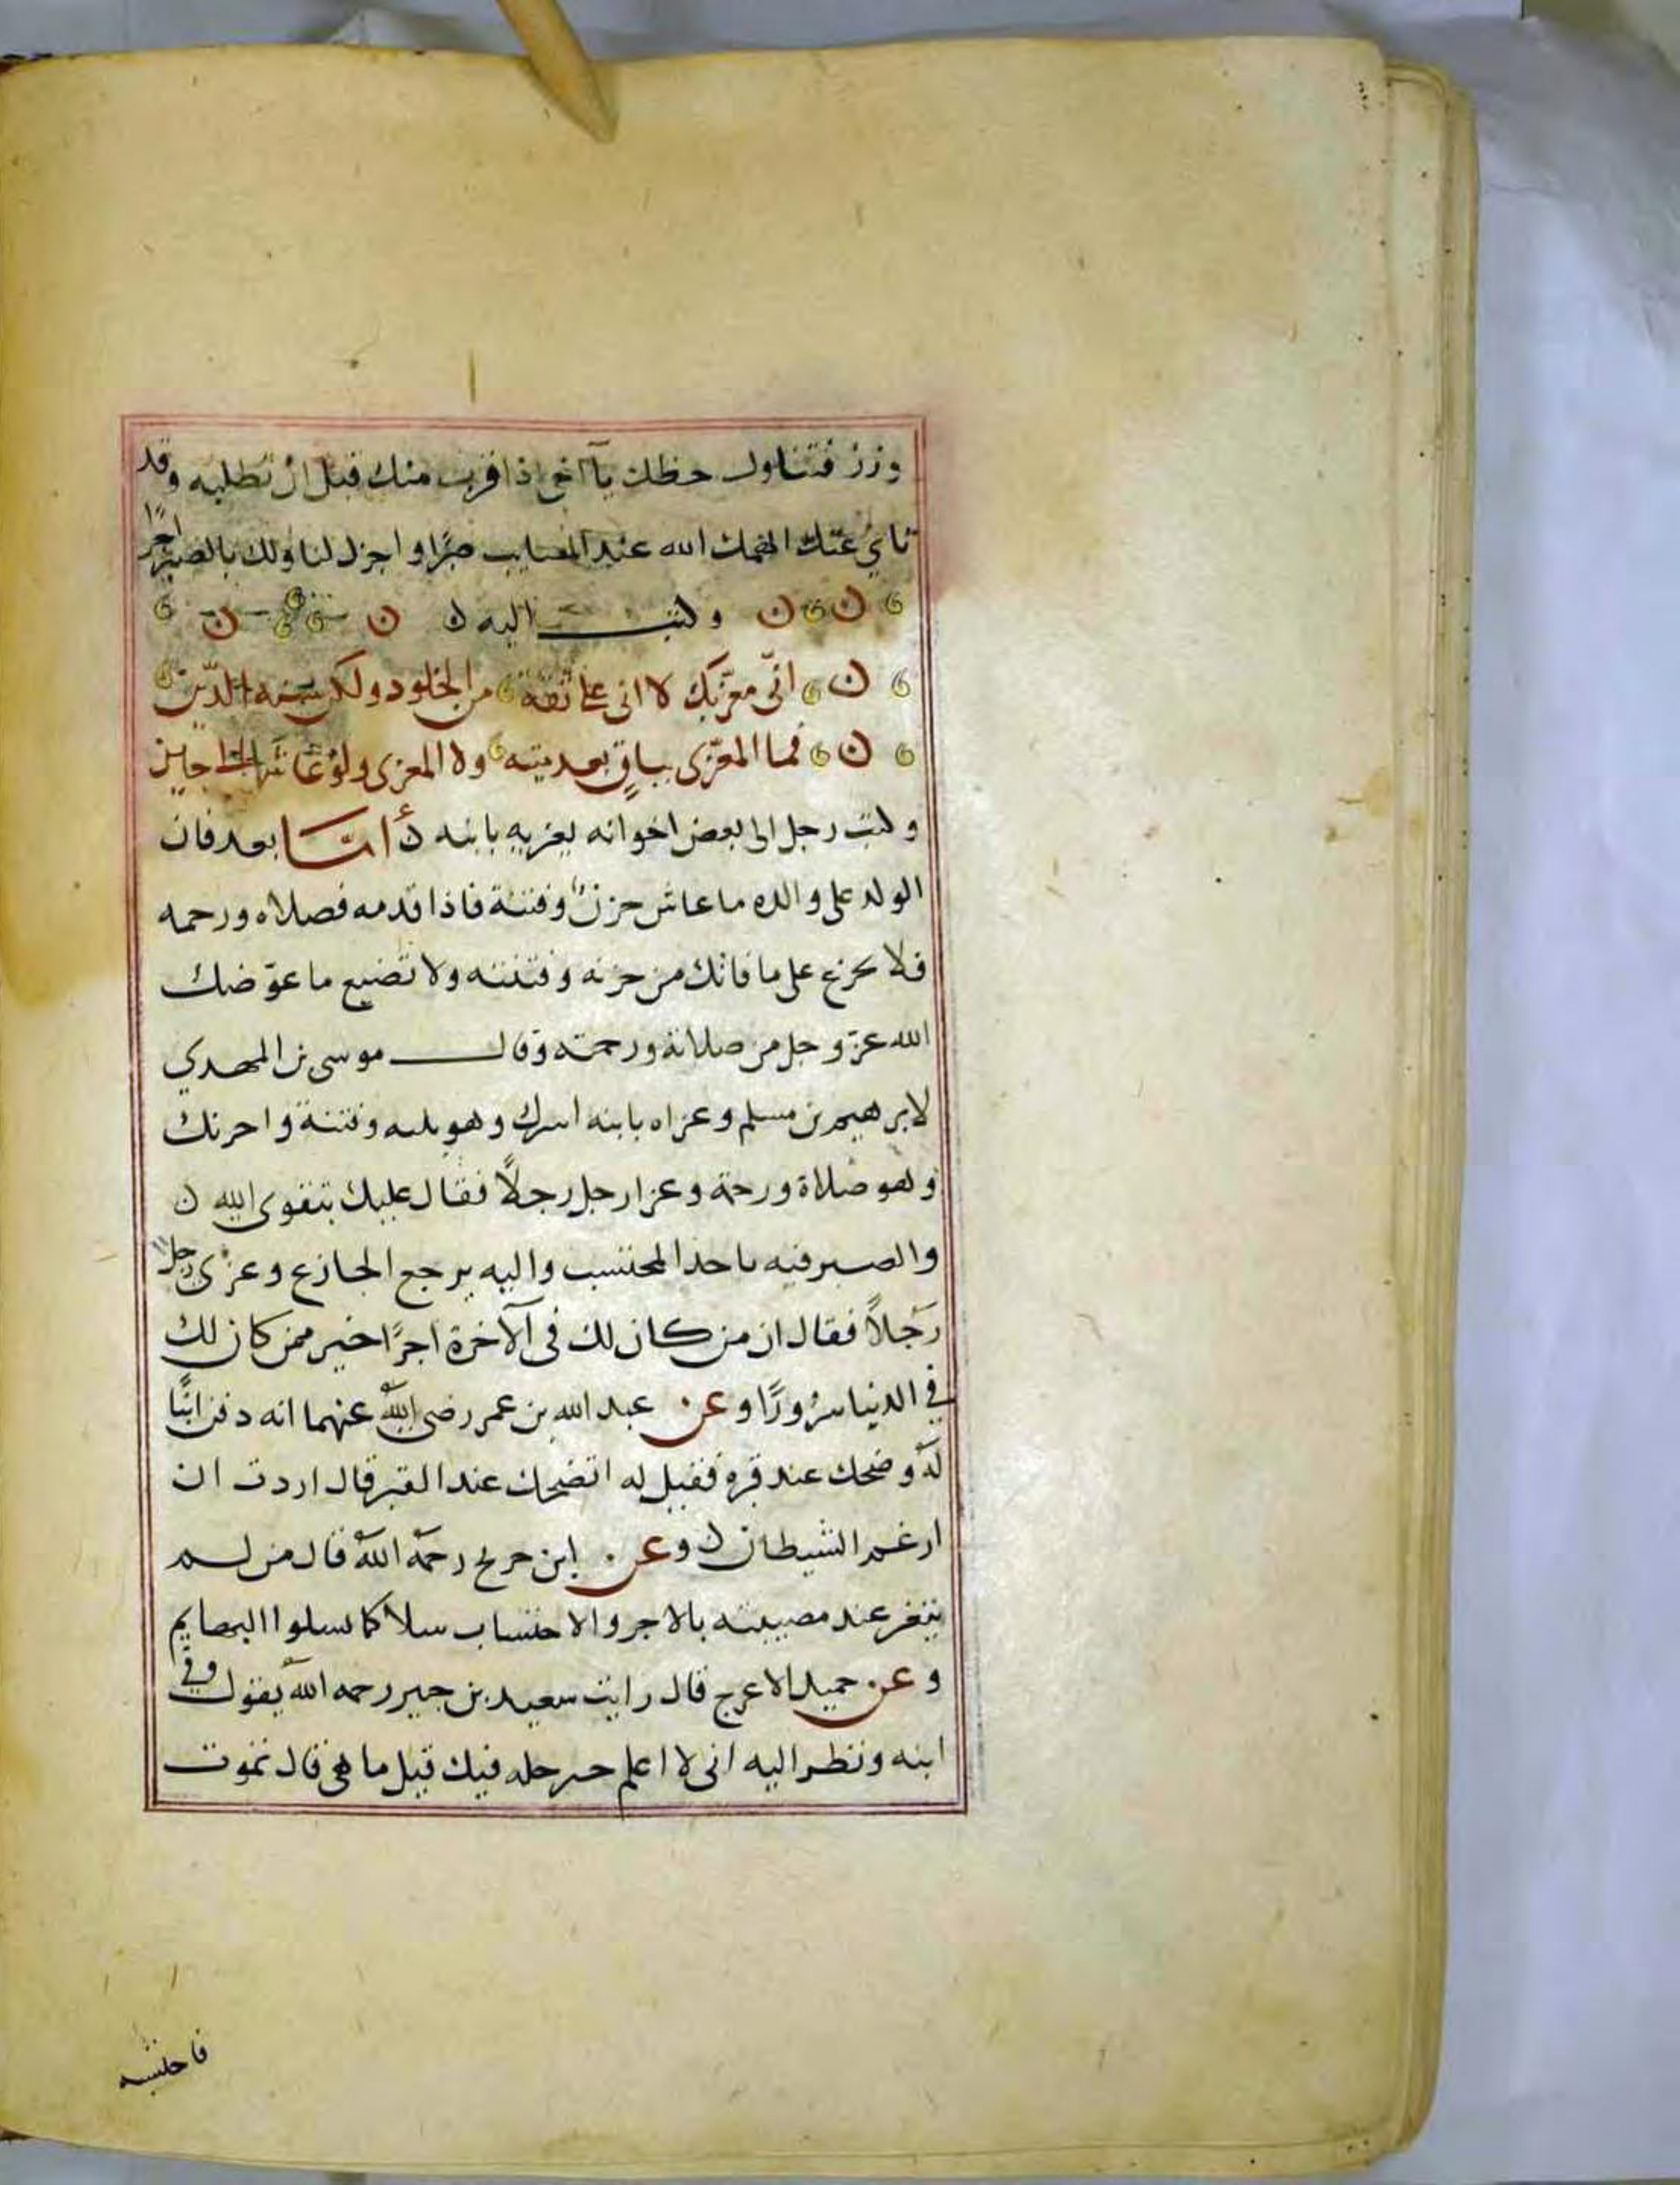 وزر فتناول حظك يا آخى اذا قرب منك قبل ان تطلبه وقد
نائ عنك الهمك الله عند المصايب صبرا واجزل لنا ولك بالصبر اجرًا
وكتب اليه ن
انّى معزّيك لا انى على ثقة من الخلود ولكن سنه الدّين
فما المعزّى بباقٍ بعد ميته ولا المعزى ولو عاشا الى حين
وكتب رجل الى بعض اخوانه يعزيه بابنه ن أمّا بعد فان
الولد على والده ما عاش حزن وفتنة فاذا قدمه فصلاه ورحمه
فلا تحزع على ما فاتك من حزنه وفتنته ولا تضيع ما عوّضك
الله عزّ وجل من صلاته ورحمته وقال موسى بن المهدي
لابرهيم بن مسلم وعزاه بابنه اسرك وهو بليه وفتنة واحزنك
وهو صلاة ورحمة وعزا رجل رجلاً فقال عليك بتقوى الله ن
والصبر فبه ياخذ المحتسب واليه يرجع الجازع وعزى رجل
رجلاً فقال ان من كان لك فى الآخرة اجرًا خير ممن كان لك
في الدنيا سرورًا وعن عبد الله بن عمر رضى الله عنهما انه دفن ابنًا
له وضحك عند قبره فقيل له اتضحك عند القبر قال اردت ان
ارغم الشيطان ن وعن ابن جريج رحمه الله قال من لم
يتعز عند مصيبته بالاجر والاحتساب سلا كما تسلوا البهايم
وعن حميد الاعرج قال رايت سعيد بن جبير رحمه الله يقول وفى
ابنه ونظر اليه انى لا اعلم خير خله فيك قيل ما هى قال تموت
فاحتسبه